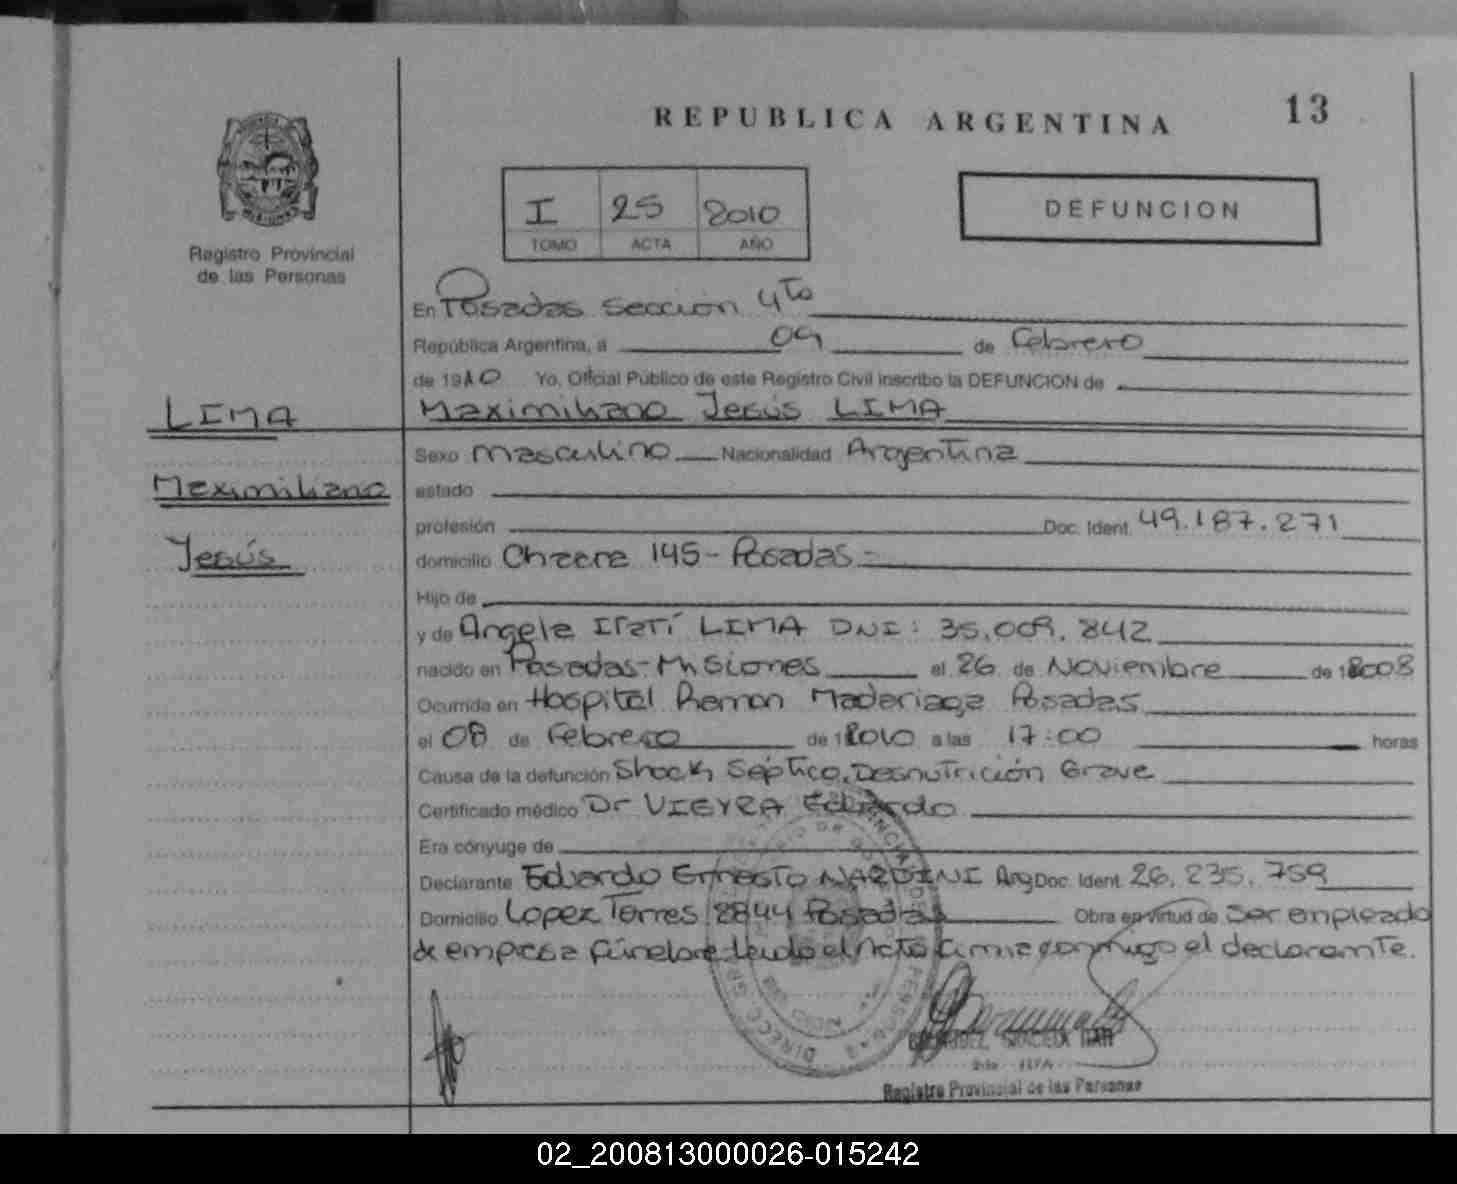 REPUBLICA ARGENTINA
13
Registro Provincial
de las Personas
I 25 2010
TOMO ACTA AÑO
DEFUNCION
En Posadas Sección 4to
República Argentina, a 09 de Febrero
de 1910 Yo, Oficial Público de este Registro Civil inscribo la DEFUNCION de
LIMA
Maximiliano Jesús LIMA
Sexo Masculino Nacionalidad Argentina
Maximiliano
estado
profesión Doc. Ident. 49.187.271
Jesús
domicilio Chacra 145 - Posadas -
Hijo de
y de Angela Itatí LIMA DNI: 35.009.842
nacido en Posadas - Misiones el 26 de Noviembre de 2008
Ocurrida en Hospital Ramon Madariaga Posadas
el 08 de Febrero de 2010 a las 17:00 horas
Causa de la defunción Shock Séptico, Desnutrición Grave
Certificado médico Dr VIEYRA Eduardo
Era cónyuge de
Declarante Eduardo Ernesto NARDINI Arg Doc. Ident. 26.235.759
Domicilio Lopez Torres 2844 Posadas Obra en virtud de Ser empleado
de empresa fúnebre leído el Acta firma conmigo el declarante.
Registro Provincial de las Personas
02_200813000026-015242